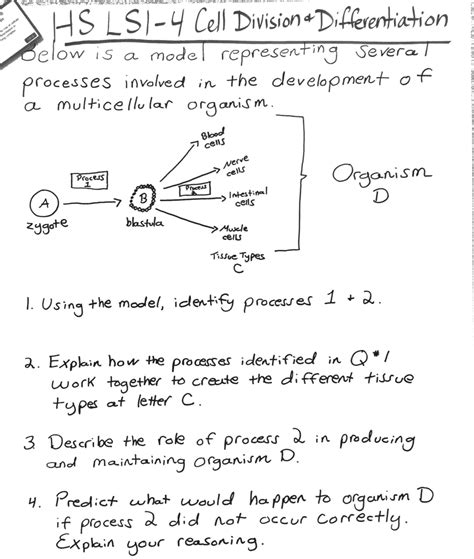 HS LS1-4 Cell Division & Differentiation
Below is a model representing several
processes involved in the development of
a multicellular organism.
Blood
cells
Nerve
cells
Process
1
Process
2
Intestinal
cells
A
B
Organism
D
zygote
blastula
Muscle
cells
Tissue Types
C
1. Using the model, identify processes 1 + 2.
2. Explain how the processes identified in Q#1
work together to create the different tissue
types at letter C.
3. Describe the role of process 2 in producing
and maintaining organism D.
4. Predict what would happen to organism D
if process 2 did not occur correctly.
Explain your reasoning.